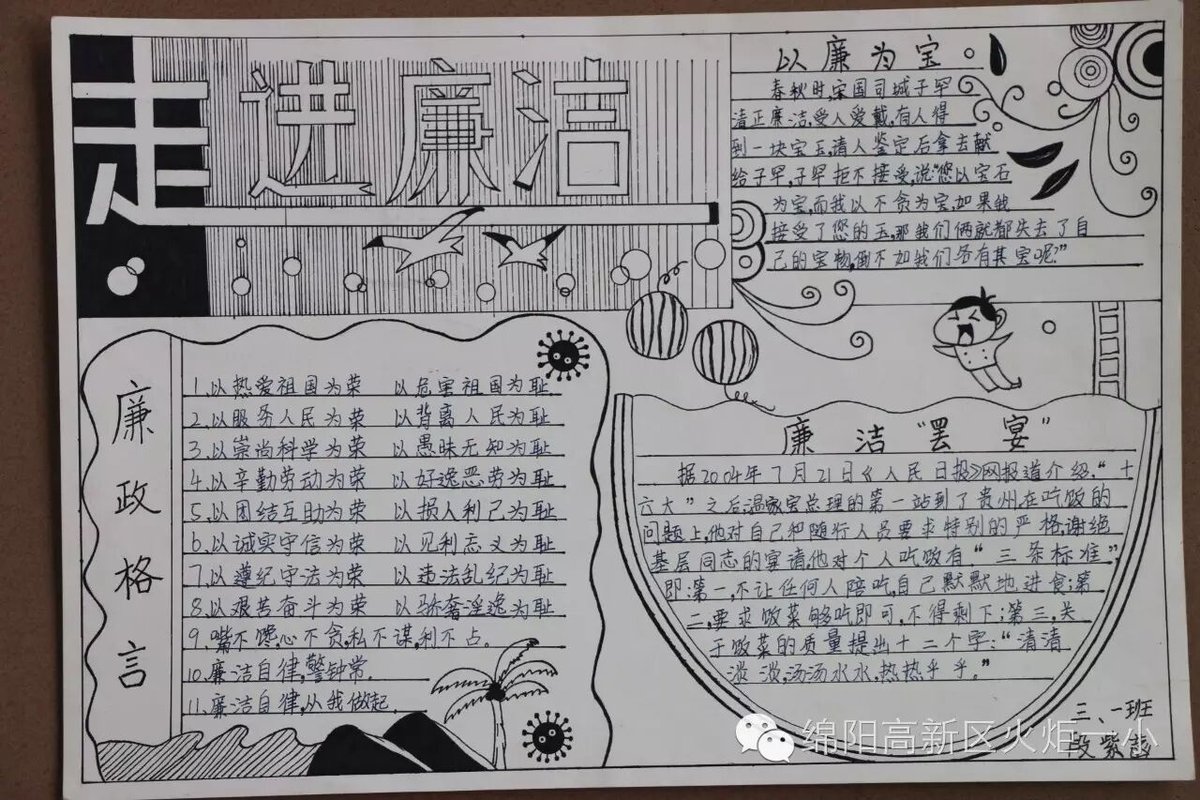 走进廉洁
以廉为宝
春秋时,宋国司城子罕
清正廉洁,受人爱戴,有人得
到一块宝玉,请人鉴定后拿去献
给子罕,子罕拒不接受,说:“您以宝石
为宝,而我以不贪为宝,如果我
接受了您的玉,那我们俩就都失去了自
己的宝物,倒不如我们各有其宝呢?”
廉政格言
1.以热爱祖国为荣 以危害祖国为耻
2.以服务人民为荣 以背离人民为耻
3.以崇尚科学为荣 以愚昧无知为耻
4.以辛勤劳动为荣 以好逸恶劳为耻
5.以团结互助为荣 以损人利己为耻
6.以诚实守信为荣 以见利忘义为耻
7.以遵纪守法为荣 以违法乱纪为耻
8.以艰苦奋斗为荣 以骄奢淫逸为耻
9.嘴不馋,心不贪,私不谋,利不占。
10.廉洁自律,警钟常.
11.廉洁自律,从我做起.
廉洁“罢宴”
据2004年7月21日《人民日报》网报道介绍:“十
六大”之后,温家宝总理的第一站到了贵州,在吃饭的
问题上,他对自己和随行人员要求特别的严格,谢绝
基层同志的宴请,他对个人吃饭有“三条标准”
即:第一,不让任何人陪吃,自己默默地进食;第
二,要求饭菜够吃即可,不得剩下;第三,关
于饭菜的质量提出十二个字:“清清
淡淡,汤汤水水,热热乎乎。”
三、一班
段紫
绵阳高新区火炬一小